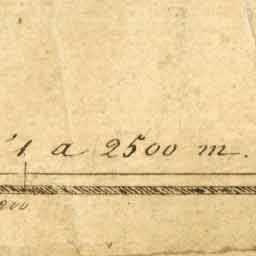 1 a 2500 m.
200